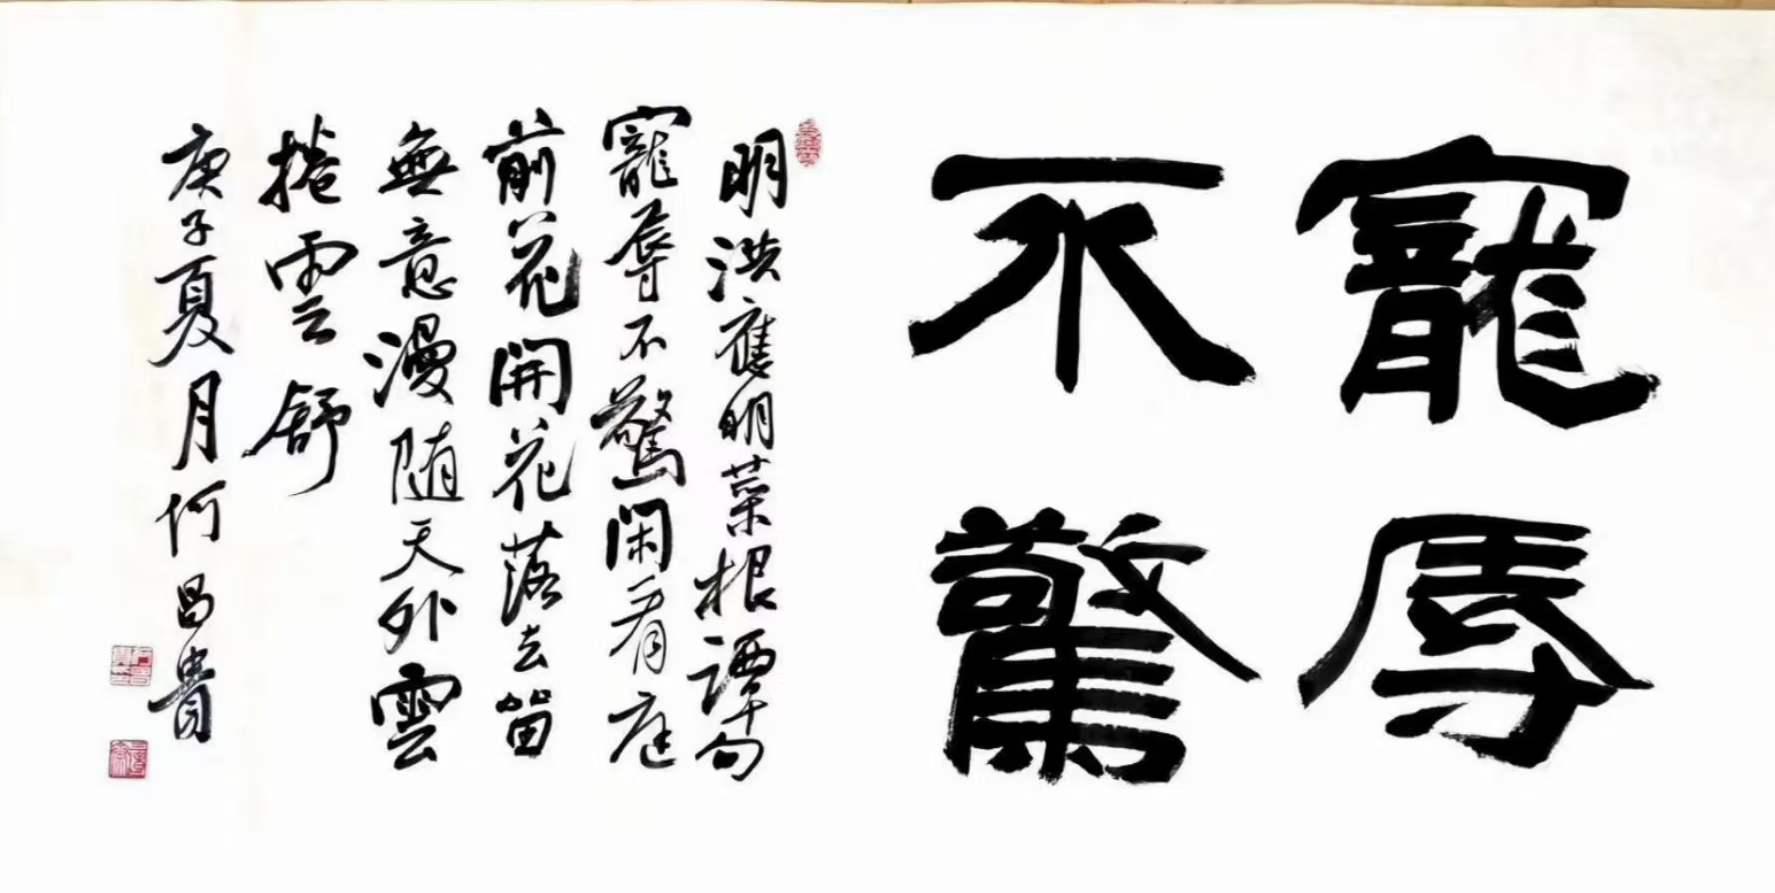 寵辱
不驚
明洪應明菜根譚句
寵辱不驚閑看庭
前花開花落去留
無意漫随天外雲
捲雲舒
庚子夏月何昌貴